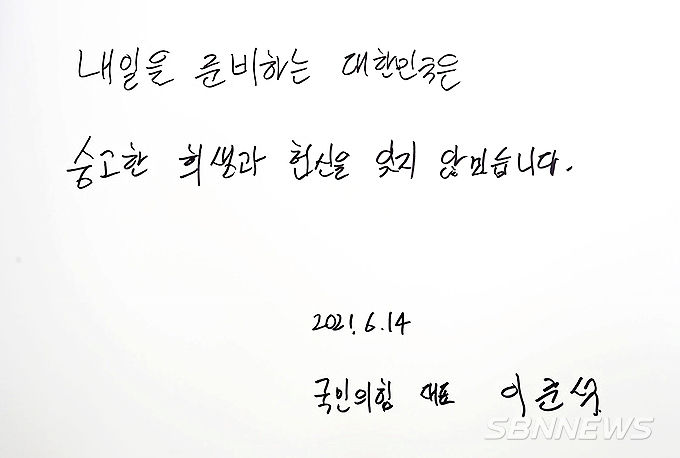 내일을 준비하는 대한민국은
숭고한 희생과 헌신을 잊지 않겠습니다.
2021. 6. 14
국민의힘 대표 이준석
SBNNEWS